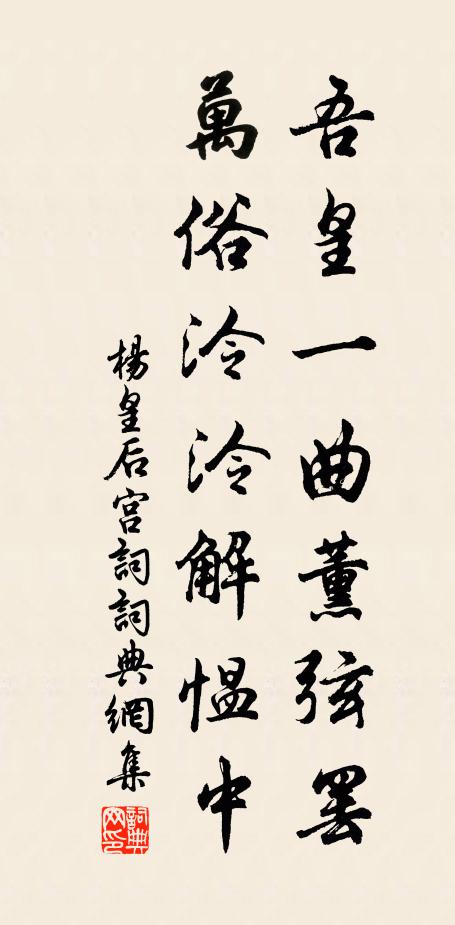 吾皇一曲薰弦罢
萬俗泠泠解愠中
楊皇后宫詞詞典網集
詞典
网印